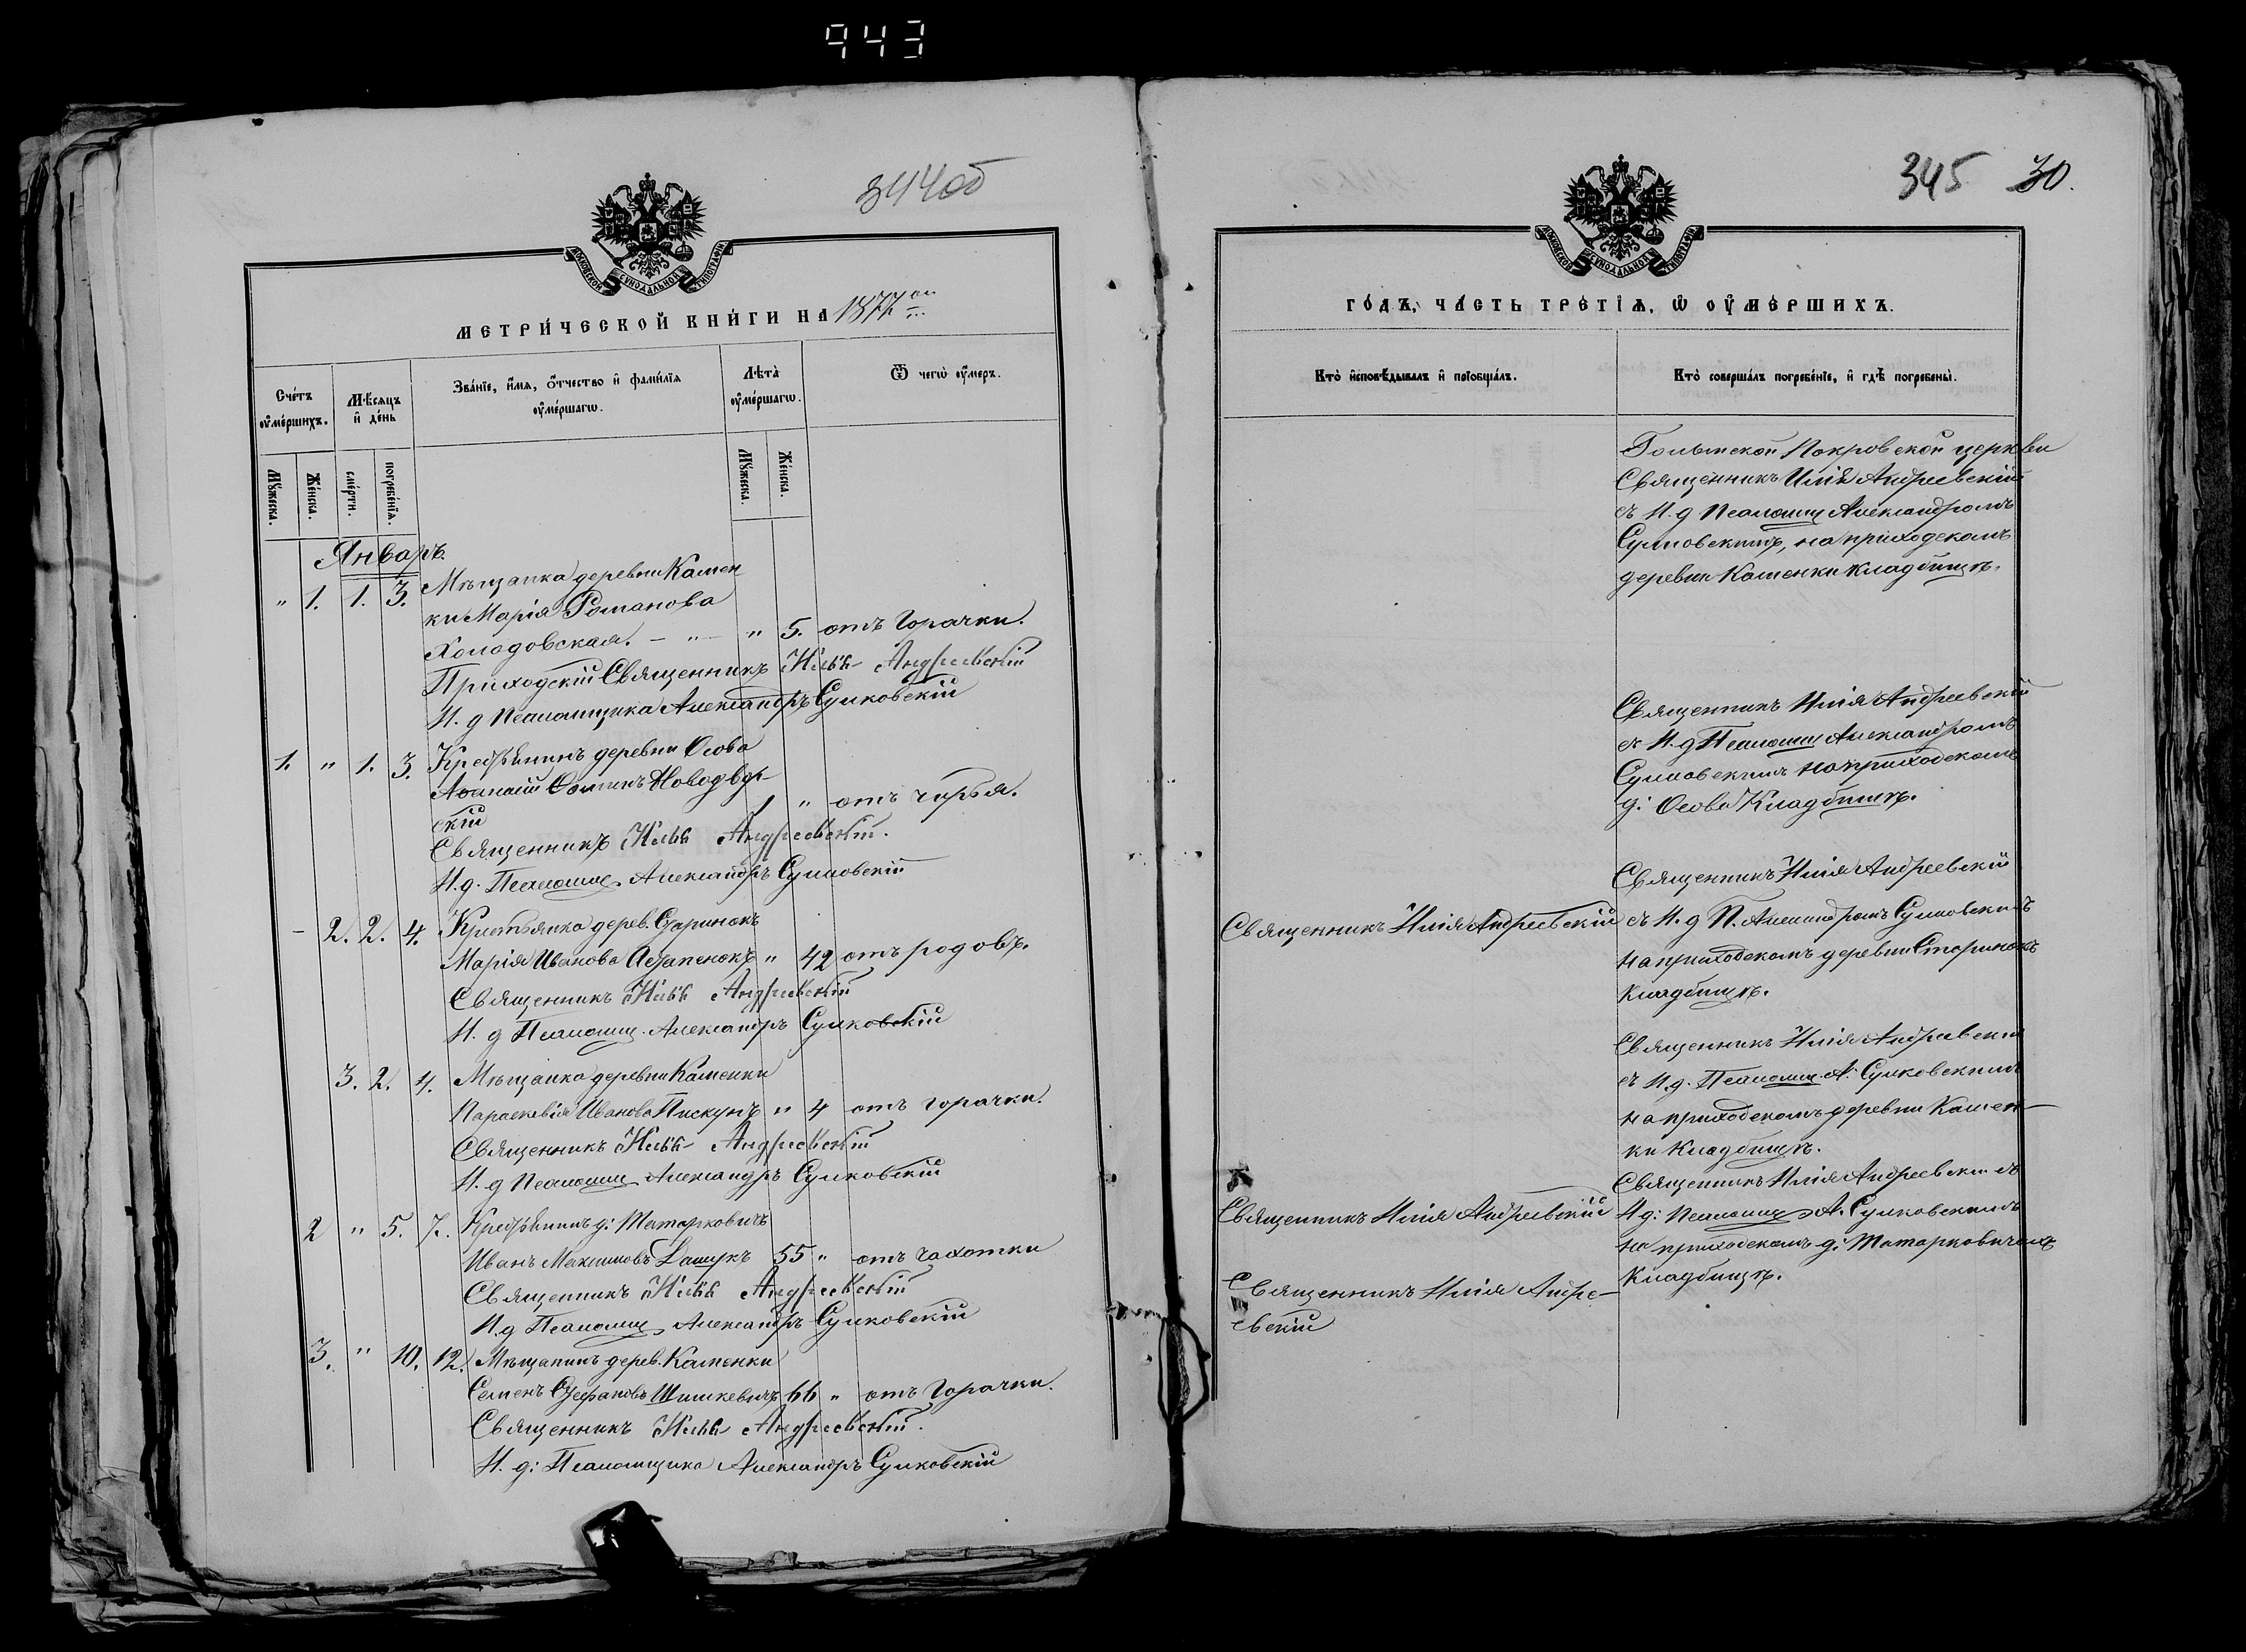 943
344об
МОСКОВСКОЙ СѴНОДАЛЬНОЙ ТИПОГРАФІИ
МЕТРИ́ЧЕСКОЙ КНИ́ГИ НА 1877ой
Сче́тъ ᲂу҆ме́ршихъ.
Мѣ́сяцъ и҆ де́нь
Зва́нїе, и҆́мѧ, ѻ҆́тчество и҆ фами́лїѧ ᲂу҆ме́ршагѡ.
Лѣта̀ ᲂу҆ме́ршагѡ.
Ѿ чегѡ̀ ᲂу҆́меръ.
Мꙋ́жеска.
Же́нска.
сме́рти.
погребе́нїѧ.
Мꙋ́жеска.
Же́нска.
Январь.
" 1. 1. 3. Мѣщанка деревни Камен
ки Марія Романова
Холодовская. — " — " 5. отъ горачки.
Приходскій Священникъ Илія Андреевскій
И. д Псаломщика Александръ Сулковскій
1. " 1. 3. Крестьянинъ деревни Осова
Аѳанасій Ѳоминъ Новодвор-
скій 1 " отъ чирья.
Священникъ Илія Андреевскій.
И. д. Псаломщ. Александръ Сулковскій
- 2. 2. 4. Крестьянка дерев. Старинокъ
Марія Иванова Астапенокъ " 42 отъ родовъ.
Священникъ Илія Андреевскій
И. д Псаломщ. Александръ Сулковскій
3. 2. 4. Мѣщанка деревни Каменки
Параскевія Иванова Пискунъ " 4 отъ горачки.
Священникъ Илія Андреевскій
И. д Псаломщ Александръ Сулковскій
2 " 5. 7. Крестьянинъ д: Татарковичъ
Иванъ Максимовъ 55 " отъ чахотки
Священникъ Илія Андреевскій
И. д Псаломщ Александръ Сулковскій
3. " 10. 12. Мѣщанинъ дерев. Каменки
Семенъ Стефановъ Шишкевичъ 66 " отъ горачки.
Священникъ Илія Андреевскій.
И. д: Псаломщика Александръ Сулковскій
345 30.
МОСКОВСКОЙ СѴНОДАЛЬНОЙ ТИПОГРАФІИ
ГО́ДЪ, ЧА́СТЬ ТРЕ́ТІѦ, Ѡ҆ ОУ҆МЕ́РШИХЪ.
Кто̀ и҆сповѣ́дывалъ и҆ прїобща́лъ.
Кто̀ соверша́лъ погребе́нїе, и҆ гдѣ̀ погребены̀.
Покровской церкви
Священникъ Илія Андреевскій
съ И. д Псаломщ Александромъ
Сулковскимъ, на приходскомъ
деревни Каменки кладбищѣ.
Священникъ Илія Андреевскій
съ И. д Псаломщ Александромъ
Сулковскимъ на приходскомъ
д: Осова Кладбищѣ.
Священникъ Илія Андреевскій
Священникъ Илія Андреевскій съ И. д П. Александромъ Сулковскимъ
на приходскомъ деревни Старинокъ
Кладбищѣ.
Священникъ Илія Андреевскій
съ И. д. Псаломщ. А. Сулковскимъ
на приходскомъ деревни Камен-
ки Кладбищѣ.
Священникъ Илія Андреевскій съ
Священникъ Илія Андреевскій И д: Псаломщ А. Сулковскимъ
на приходскомъ д: Татарковичахъ
Кладбищѣ.
Священникъ Илія Андре-
евскій